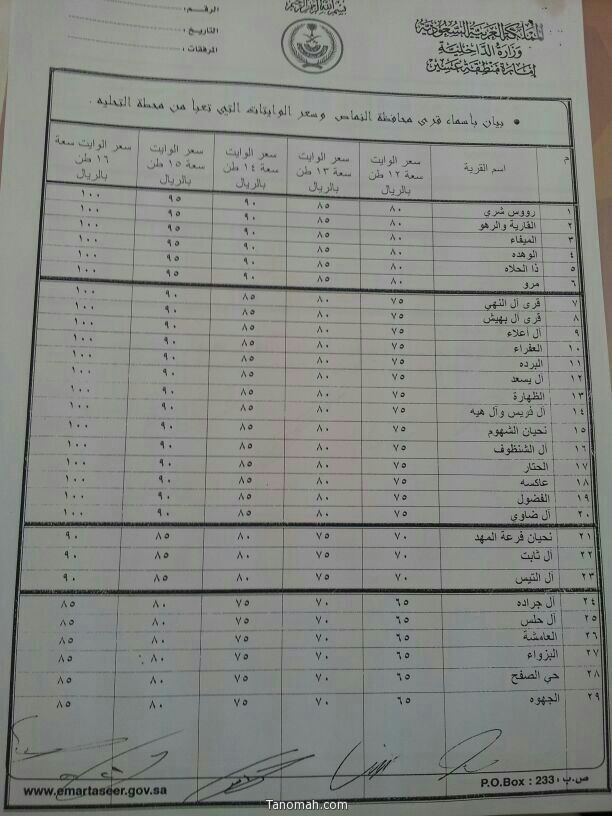 بسم الله الرحمن الرحيم
المملكة العربية السعودية
وزارة الداخلية
إمارة منطقة عسير
الرقم :
التاريخ :
المرفقات :
• بيان بأسماء قرى محافظة النماص وسعر الوايتات التي تعبا من محطة التحليه .
م اسم القرية سعر الوايت سعة ١٢ طن بالريال سعر الوايت سعة ١٣ طن بالريال سعر الوايت سعة ١٤ طن بالريال سعر الوايت سعة ١٥ طن بالريال سعر الوايت سعة ١٦ طن بالريال
١ رووس شري ٨٠ ٨٥ ٩٠ ٩٥ ١٠٠
٢ القارية والرهو ٨٠ ٨٥ ٩٠ ٩٥ ١٠٠
٣ الميفاء ٨٠ ٨٥ ٩٠ ٩٥ ١٠٠
٤ الوهده ٨٠ ٨٥ ٩٠ ٩٥ ١٠٠
٥ ذا الحلاه ٨٠ ٨٥ ٩٠ ٩٥ ١٠٠
٦ مرو ٨٠ ٨٥ ٩٠ ٩٥ ١٠٠
٧ قرى آل النهي ٧٥ ٨٠ ٨٥ ٩٠ ١٠٠
٨ قرى آل بهيش ٧٥ ٨٠ ٨٥ ٩٠ ١٠٠
٩ آل أعلاء ٧٥ ٨٠ ٨٥ ٩٠ ١٠٠
١٠ العفراء ٧٥ ٨٠ ٨٥ ٩٠ ١٠٠
١١ البرده ٧٥ ٨٠ ٨٥ ٩٠ ١٠٠
١٢ آل يسعد ٧٥ ٨٠ ٨٥ ٩٠ ١٠٠
١٣ الظهارة ٧٥ ٨٠ ٨٥ ٩٠ ١٠٠
١٤ آل دريس وآل هيه ٧٥ ٨٠ ٨٥ ٩٠ ١٠٠
١٥ نحيان الشهوم ٧٥ ٨٠ ٨٥ ٩٠ ١٠٠
١٦ آل الشنظوف ٧٥ ٨٠ ٨٥ ٩٠ ١٠٠
١٧ الحتار ٧٥ ٨٠ ٨٥ ٩٠ ١٠٠
١٨ عاكسه ٧٥ ٨٠ ٨٥ ٩٠ ١٠٠
١٩ الفضول ٧٥ ٨٠ ٨٥ ٩٠ ١٠٠
٢٠ آل ضاوي ٧٥ ٨٠ ٨٥ ٩٠ ١٠٠
٢١ نحيان فرعة المهد ٧٠ ٧٥ ٨٠ ٨٥ ٩٠
٢٢ آل ثابت ٧٠ ٧٥ ٨٠ ٨٥ ٩٠
٢٣ آل التيس ٧٠ ٧٥ ٨٠ ٨٥ ٩٠
٢٤ آل جراده ٦٥ ٧٠ ٧٥ ٨٠ ٨٥
٢٥ آل حلس ٦٥ ٧٠ ٧٥ ٨٠ ٨٥
٢٦ العامشة ٦٥ ٧٠ ٧٥ ٨٠ ٨٥
٢٧ البزواء ٦٥ ٧٠ ٧٥ ٨٠ ٨٥
٢٨ حي الصفح ٦٥ ٧٠ ٧٥ ٨٠ ٨٥
٢٩ الجهوه ٦٥ ٧٠ ٧٥ ٨٠ ٨٥
ص.ب : 233 P.O.Box :
www.emartaseer.gov.sa
Tanomah.com